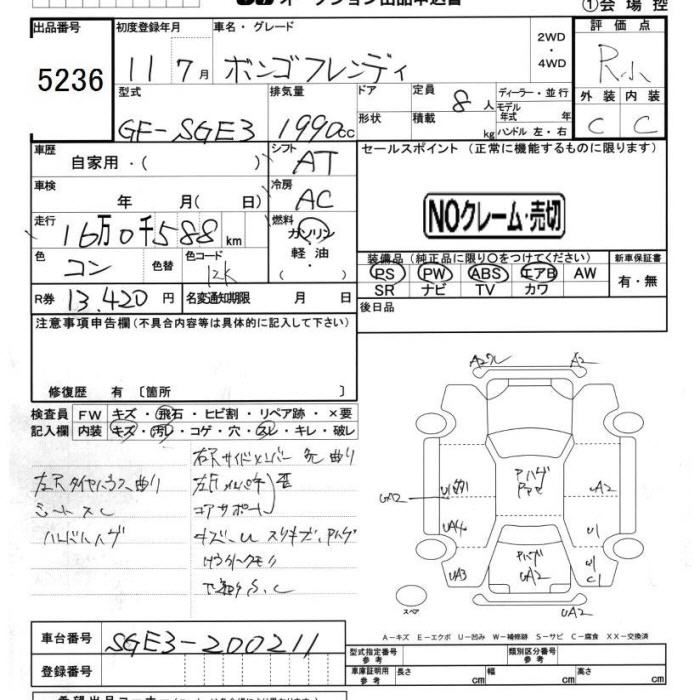 オークション出品申込書
①会場控
出品番号 初度登録年月 車名・グレード 2WD・4WD 評価点
5236 11 7月 ボンゴフレンディ R小
型式 排気量 ドア 定員 8人 ディーラー・並行 外装 内装
GF-SGE3 1990cc 形状 積載 kg モデル年式 年 C C
ハンドル 左・右
車歴 自家用・( ) シフト AT セールスポイント (正常に機能するものに限ります)
車検 年 月( 日) 冷房 AC
NOクレーム・売切
走行 16万0千588km 燃料 ガソリン・軽油・
色 コン 色替 色コード 12K
装備品(純正品に限り○をつけてください) 新車保証書
PS PW ABS エアB AW 有・無
SR ナビ TV カワ
R券 13,420円 名変通知期限 月 日 後日品
注意事項申告欄(不具合内容等は具体的に記入して下さい)
修復歴 有 〔箇所 〕
検査員 FW キズ・飛石・ヒビ割・リペア跡・×要
記入欄 内装 キズ・汚レ・コゲ・穴・スレ・キレ・破レ
右尺サイドメンバー 先曲り
左尺タイヤハウス曲り
コアサポート
シートスレ
ハンドルハゲ
A2 A2
Pハゲ
UA2
UA2
U1
UA4
UA3
A2
U1
U1
C1
Pハゲ
UA2
UA2
スペア
A－キズ E－エクボ U－凹み W－補修跡 S－サビ C－腐食 XX－交換済
車台番号 SGE3-200211 型式指定番号 参考 類別区分番号 参考
登録番号 車体証明用 参考 長さ cm 幅 cm 高さ cm